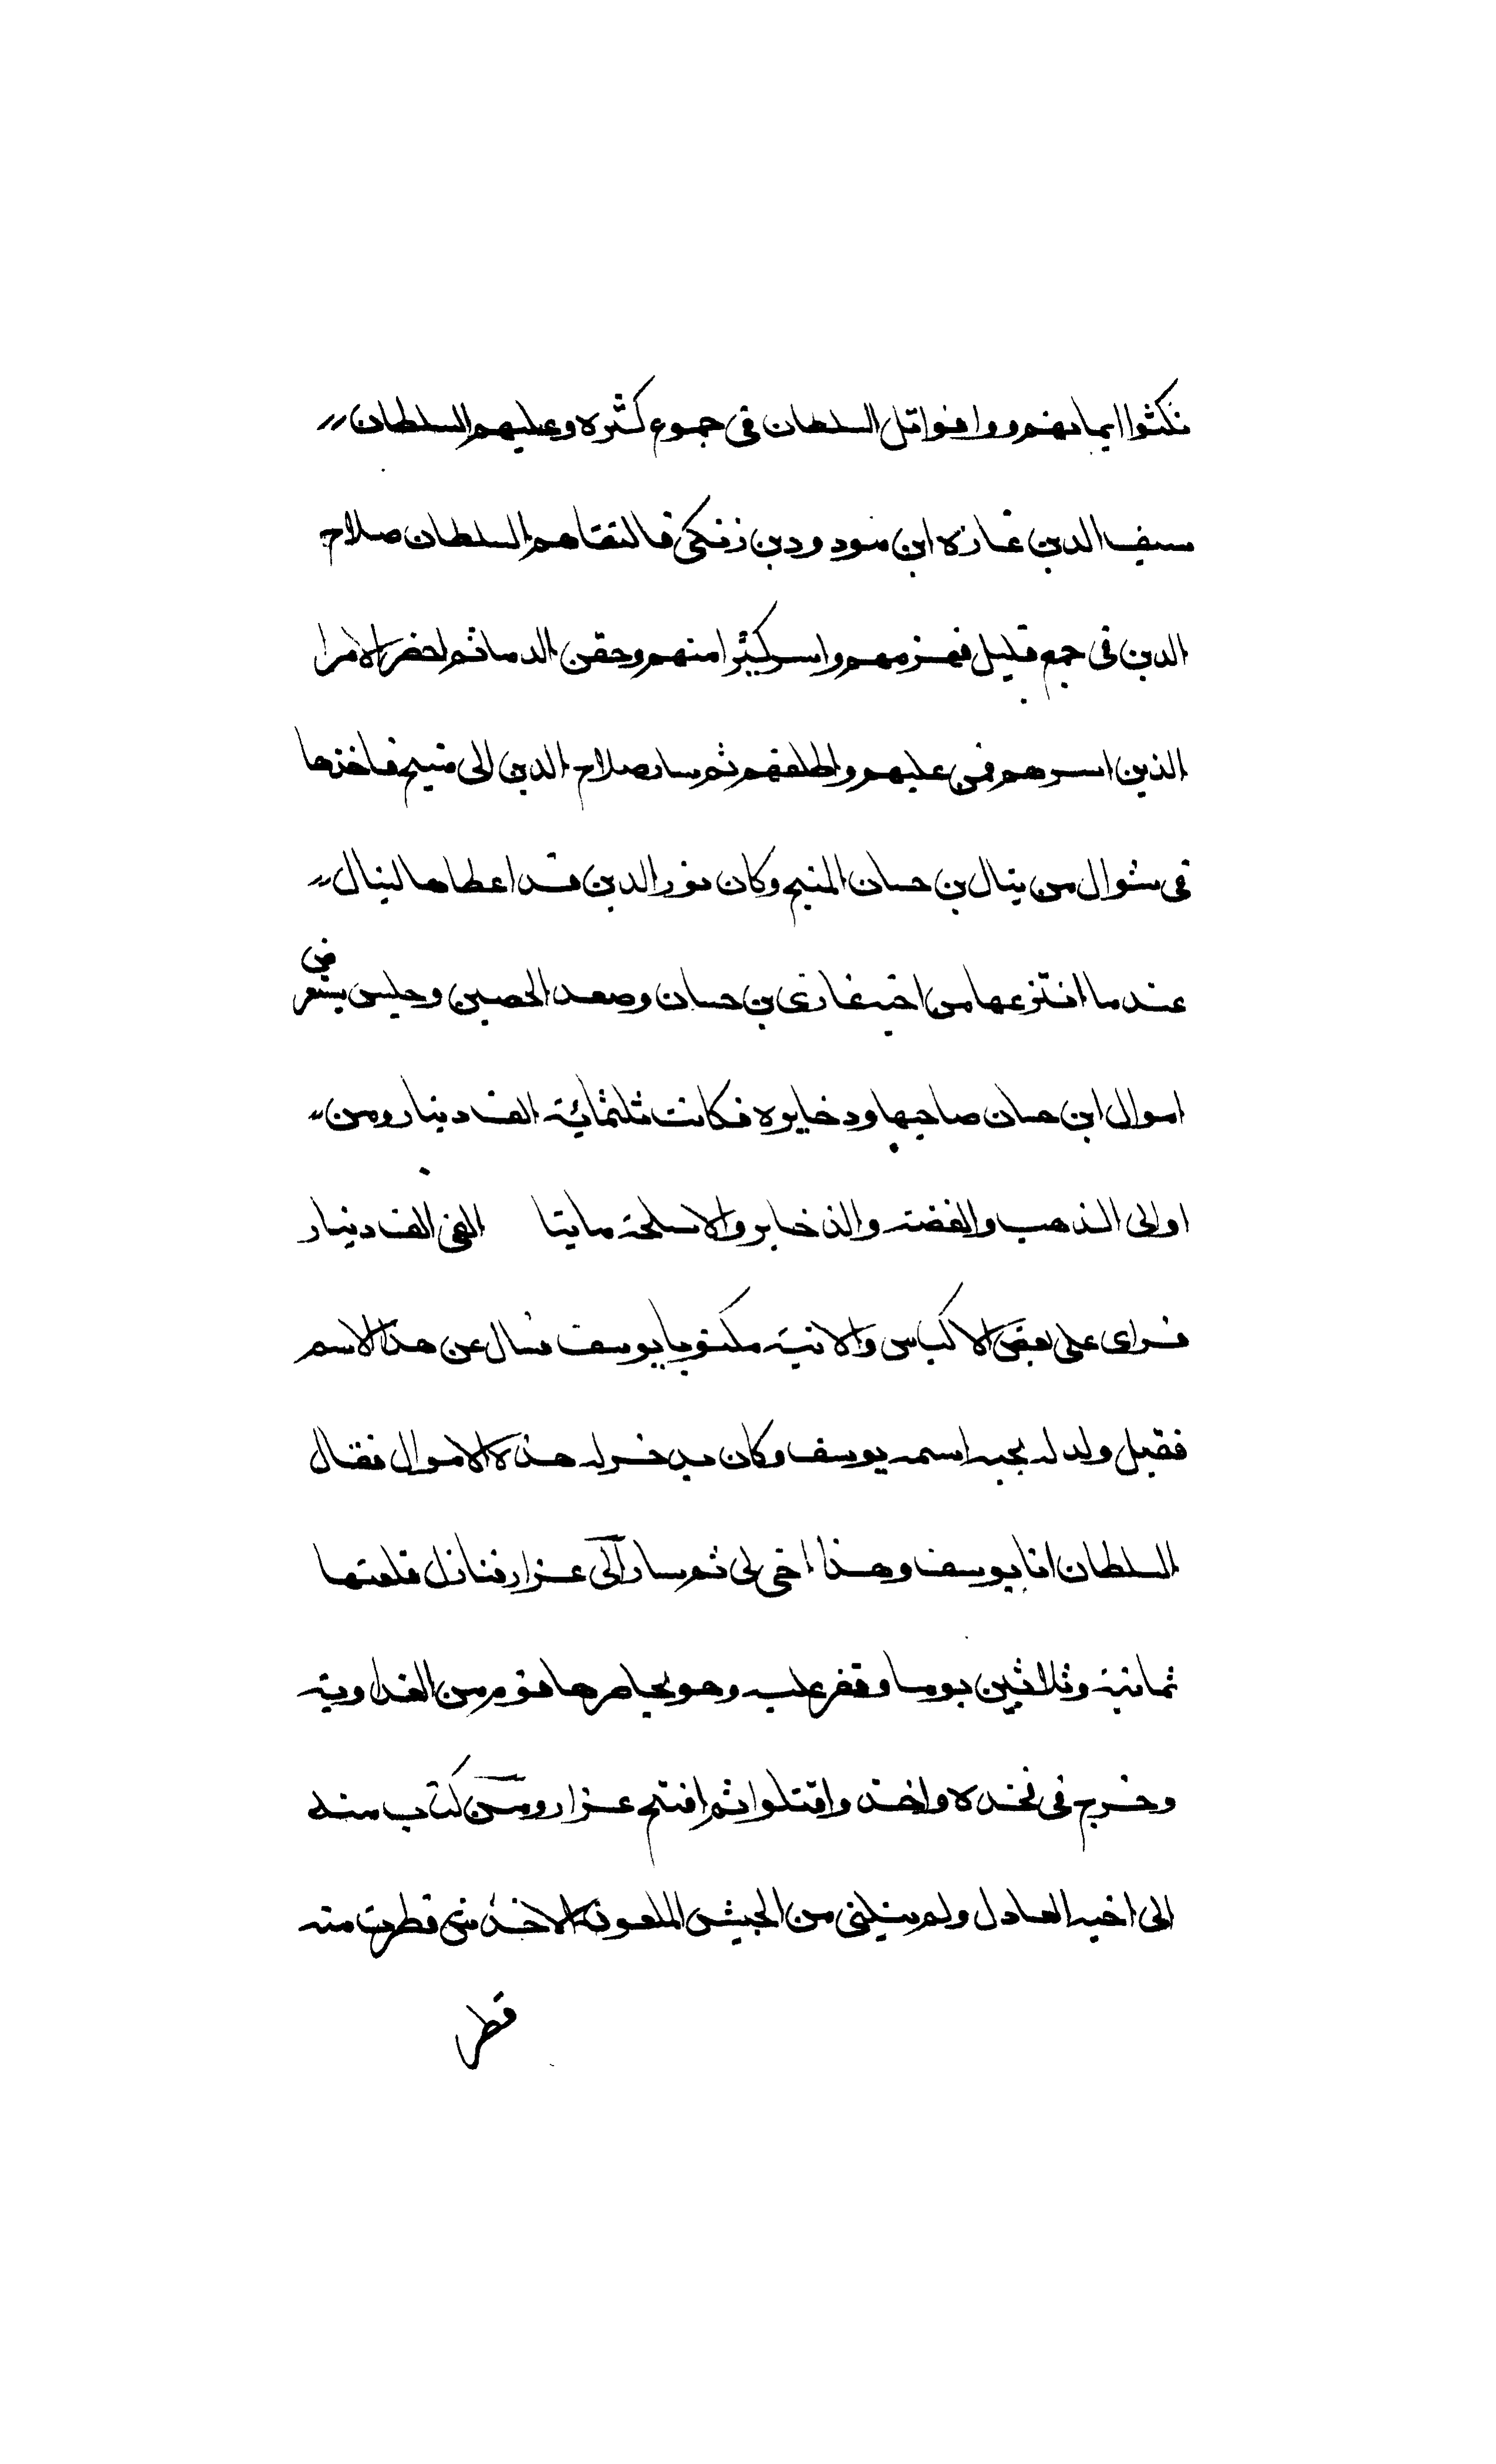 نكثوا ايمانهم ووافوا تل السلطان فى جموع كثره وعليهم السلطان
سيف الدين غازه ابن مودود بن زنكى فالتقاهم السلطان صلاح
الدين فى جمع قليل فهزمهم واسر كثيرا منهم وحقن الدما ثم احضر الامرا
الذين اسرهم فمن عليهم واطلقهم ثم سار صلاح الدين الى منبج فاخذها
فى شوال من ينال بن حسان المنبجى وكان نور الدين قد اعطاها لينال
عندما انتزعها من اخيه غازى بن حسان وصعد الحصين وجلس يستعرض
اموال ابن حسان صاحبها ودخايره فكانت ثلثمائة الف دينار ومن
اوانى الذهب والفضة والذخاير والاسلحة مايتا الفى الف دينار
فراى على بعض الاكياس والانية مكتوبا يوسف فسال عن هذا الاسم
فقيل ولد له يحبه اسمه يوسف وكان يدخر له هذه الاموال فقال
السلطان انا يوسف وهذا اخى لى ثم سار الى عزاز فنازل قلعتها
ثمانية وثلاثين يوما وقفز عليه وهو يحاصرها قوم من الفداوية
وخرج فى فخده واخذ واقتلوا ثم افتتح عزاز ومن كتاب منه
الى اخيه العادل ولم ينلنى من الجيش الملعون الاخدش قطرت منه
قطر